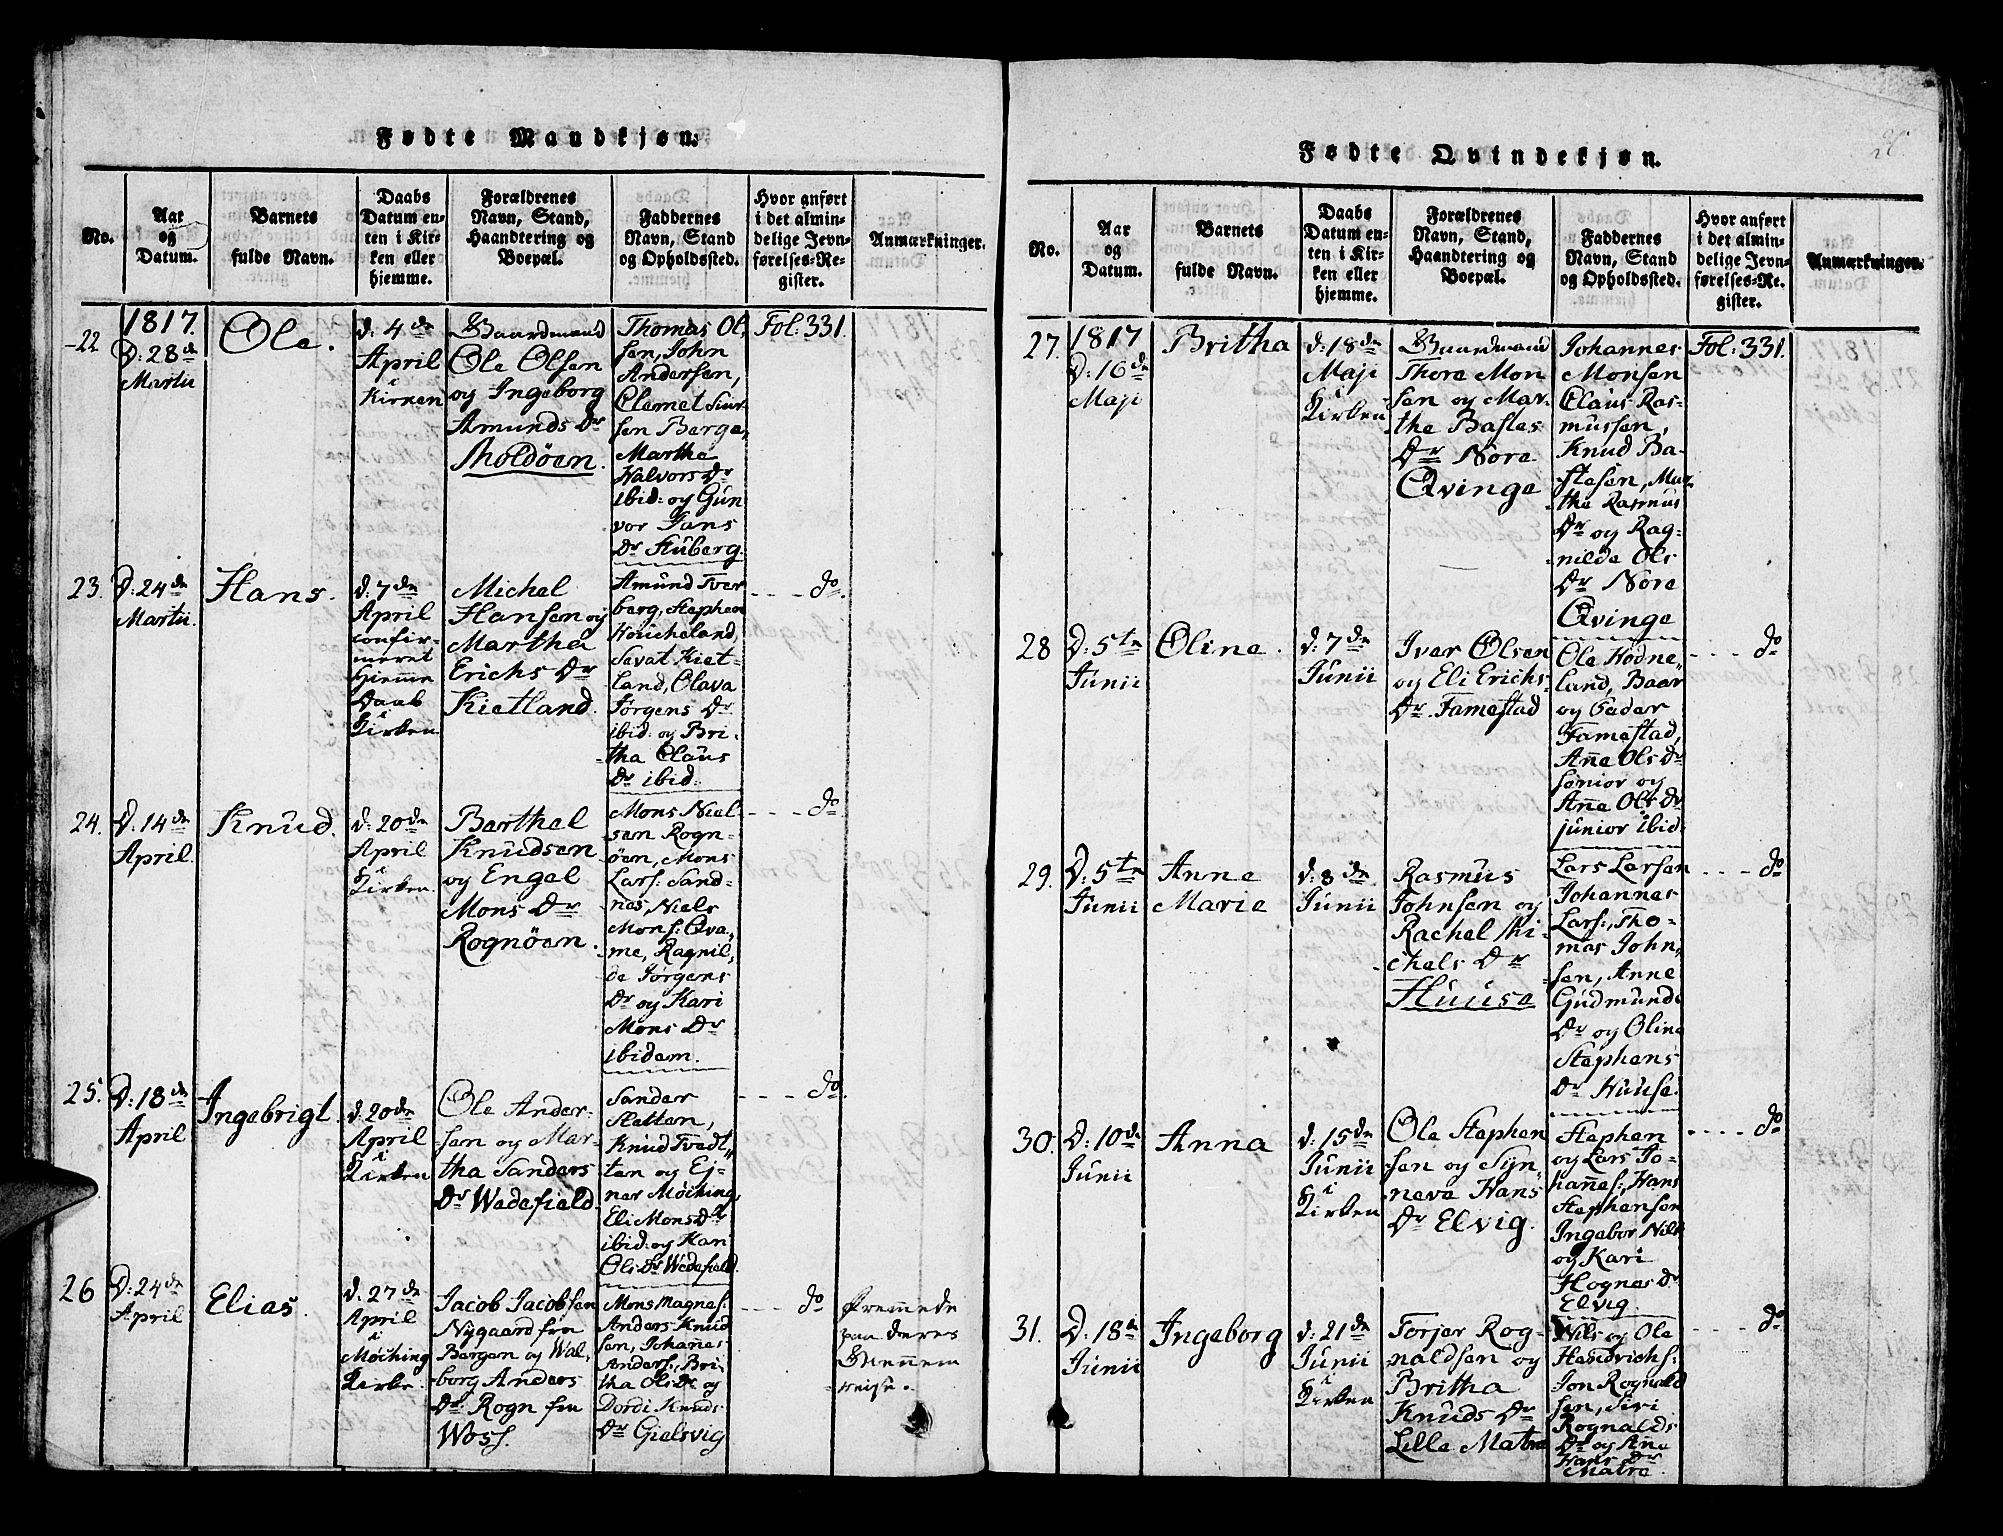 Fødte Mandkjøn.
No.
Aar
og
Datum.
Barnets
fulde Navn.
Daabs
Datum en-
ten i Kir-
ken eller
hjemme.
Forældrenes
Navn, Stand,
Haandtering og
Boepæl.
Faddernes
Navn, Stand
og Opholdssted.
Hvor anført
i det almin-
delige Jevn-
førelses-Re-
gister.
Anmærkninger.
22
1817.
D: 28de
Martii
Ole.
d: 4de
April
i
Kirken
Gaardmand
Ole Olsen
og Ingeborg
Amunds Dr
Tholdøen.
Thomas Ol,
sen, John
Andersen,
Clemet Siur-
sen Berge,
Martha
Halvors Dr
ibid: og Gun
vor Jans
Dr Stuberg.
Fol: 331.
23.
D: 24de
Martii.
Hans.
d: 7de
April
confir-
meret
Hjemme
Daab
i
Kirken
Michel
Hansen og
Martha
Erichs Dr
Kietland.
Amund Tver
berg, Stephen
Houcheland,
Sevat Kiet-
land, Olava
Jørgens Dr
ibid: og Bri-
tha Claus
Dr ibid:
- - - - do.
24.
D: 14de
April.
Knud.
d: 20de
April
i
Kirken.
Berthel
Knudsen
og Engel
Mons Dr
Rognøen.
Mons Niel-
sen Rogn-
øen, Mons
Lars: Sand-
nes, Niels
Mons: Qva,
me, Ragnil,
de Jørgens
Dr og Kari
Mons Dr
ibidem.
- - - - do
25.
D: 18de
April
Ingebrigt
d: 20de
April
i
Kirken
Ole Ander-
sen og Mar-
tha Sanders
Dr Wedefield.
Sander
Sletten,
Knud Tvedt,
ten og Ej-
ner Møching,
Eli Mons Dr
ibid: og Kari
Ols Dr Wedefield.
- - - - do.
26
D: 24de
April
Elias.
d: 27de
April
i
Møching
Kirke.
Jacob Jacobsen
Nygaard fra
Bergen og Wal-
borg Anders
Dr Rogn fra
Woss.
Mons Magnes:
Anders Knud
sen, Johannes
Anders:, Bri-
tha Ols Dr og
Dordi Knuds
Dr Gielsvig
- - - - do
Fremmede
paa deres
Giennem
reise.
Fødte Qvindekjøn.
26
No.
Aar
og
Datum.
Barnets
fulde Navn.
Daabs
Datum en-
ten i Kir-
ken eller
hjemme.
Forældrenes
Navn, Stand,
Haandtering og
Boepæl.
Faddernes
Navn, Stand
og Opholdssted.
Hvor anført
i det almin-
delige Jevn-
førelses-Re-
gister.
Anmærkninger.
27.
1817
D: 16de
Maji
Britha
d: 18de
Maji
i
Kirken
Gaardmand
Thore Mon
sen og Mar-
tha Bastes
Dr Nore
Qvinge
Johannes
Monsen
Claus Ras-
mussen,
Knud Ba-
stesen, Mar
the Rasmus
Dr og Rag-
nilde Ols
Dr Nore
Qvinge
Fol: 331.
28
D: 5te
Junii
Oline.
d: 7de
Junii
Iver Olsen
og Eli Erichs-
Dr. Famestad
Ole Hodne,
land, Baar
og Peder
Famestad,
Anne Ols Dr
senior og
Anne Ols Dr
junior ibid:
- - - - do
29.
D: 5te
Junii
Anne
Marie
d: 8de
Junii
Rasmus
Johnsen og
Rachel Mi-
chels Dr
Huuse
Lars Larsen
Johannes
Lars:, Tho-
mas John,
sen, Anne
Gudmunds
Dr og Oline
Stephens
Dr Huuse.
- - - - do
30.
D: 10de
Junii
Anna
d: 15de
Junii
i
Kirken
Ole Stephen
sen og Syn,
neva Hans
Dr Elvig.
Stephen
og Lars Jo-
hannes:, Hans
Stephensen
Ingebor Nils
og Kari
Hognes Dr
Elvig.
- - - - do
31.
D: 18de
Junii
Ingeborg
d: 21de
Junii
i
Kirken
Torjer Rog-
naldsen og
Britha
Knuds Dr
Lille Matre
Nils og Ole
Hendrichs:
Jon Rognald
sen, Siri
Rognalds
Dr og Anne
Hans Dr
Matre.
- - - - do